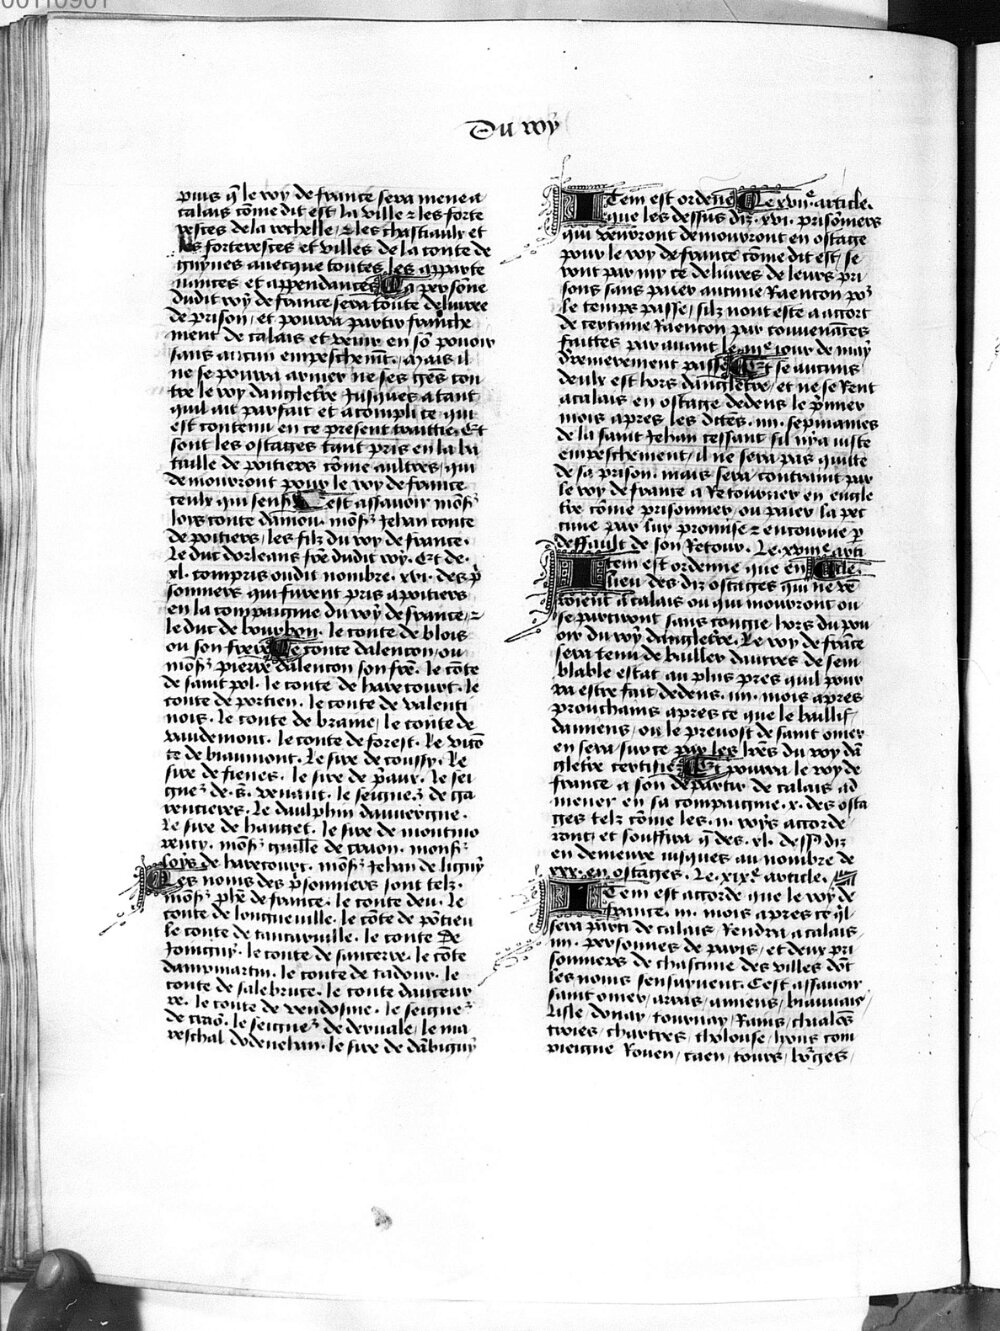 00110901
Du roy
puis q̃ le roy de france sera mene a
calais cõme dit est la ville ⁊ les forte
resces de la rochelle, ⁊ les chastiaulx et
les forteresces et villes de la conte de
guynes auecque toutes les apparte
nances et appendances La persõne
dudit roy de france sera toute deliuree
de prison, et pourra partir franche
ment de calais et venir en sõ pouoir
sans aucun empeschemẽt, mais il
ne se pourra armer ne ses gẽs con
tre le roy dangletr̃e Jusques a tant
quil ait parfait et acompli ce qui
est contenu en ce present traittie. Et
sont les ostages tant pris en la ba
taille de poitiers cõme aultres, qui
demourront pour le roy de france
ceulx qui sensf est assauoir mons̃
loys conte daniou. mons̃ Jehan conte
de poitiers, les filz du roy de france.
Le duc dorleans fr̃e dudit roy. Et de.
.xl. compris oudit nombre. xvi. des p̃
sonniers qui furent pris a poitiers
en la compaignie du roy de france, ⁊
le duc de bourbon. le conte de blois
ou son frere Le conte dalencon, ou
mons̃ pierre dalencon son fr̃e. le cõte
de saint pol. le conte de harecourt. le
conte de portien. le conte de valenti
nois. le conte de braine, le conte de
vaudemont. le conte de forest. Le vicõ
te de biaumont. Le sire de coussy. Le
sire de fienes. le sire de p̃aux. Le sei
gneᷣ de .s̃. venant. le seigneᷣ de ga
rencieres. Le daulphin dauuergne.
Le sire de hanget. le sire de montmo
rency. mons̃ guill̃e de craon. mons̃
loys de harecourt. mons̃ Jehan de ligny
Les noms des p̃sonniers sont telz.
mons̃ phẽ de france. le conte deu. Le
conte de longueville. le cõte de põtieu
le conte de tancaruille. le conte de
Joingny. le conte de sancerre. le cõte
dampmartin. le conte de tadour. le
conte de salebruce. le conte dauceur
re. le conte de vendosme. le seigneᷣ
de craõ. le seigneᷣ de deruale, le ma
reschal dodenehan. le sire de dãbigny
Item est ordene Le xvijᵉ. article.
que les dessus diz .xvi. prisõniers
qui venrront demourront en ostage
pour le roy de france cõme dit est, se
ront par my ce deliures de leurs pri
sons sans paier aucune Raencon poᷣ
le temps passe, silz nont este a accort
de certaine Raencon par conuenãces
faittes par auant le iijᵉ iour de may
derrenierement passe Et se aucuns
deulx est hors dangletr̃e, et ne se Rent
a calais en ostage dedens le p̃mier
mois apres les dites .iij. sepmaines
de la saint Jehan cessant sil ny a iuste
empeschement, il ne sera pas quitte
de sa prison. mais sera contraint par
le roy de france a Retourner en engle
tr̃e cõme prisonnier, ou paier la pei
ne par luy promise ⁊ encourue p
deffault de son Retour. Le .xviijᵉ arti
Item est ordenne que en cle.
lieu des diz ostages qui ne vẽ
roient a calais ou qui mourront ou
se partiront sans congie hors du pou
oir du roy dangletr̃e. Le roy de frãce
sera tenu de bailler dautres de sem
blable estat au plus pres quil pour
ra estre fait dedens .iiij. mois apres
prouchains apres ce que le baillif
damiens, ou le preuost de saint omer
en sera sur ce par les l̃res du roy dã
gletr̃e certifie Et pourra le roy de
france a son departir de calais ad
mener en sa compaignie .x. des osta
ges telz cõme les .ij. roys accorde
ront, et souffira q̃ des .xl. dess̃ diz
en demeure iusques au nombre de
.xxx. en ostages. Le .xixᵉ. article.
Item est accorde que le roy de
france .iij. mois apres ce q̃l
sera parti de calais Rendra a calais,
.iiij. personnes de paris, et deux per
sonnes de chascune des villes dõt
les noms sensuyuent. Cest assauoir
saint omer, arras, amiens, biauuais
Lisle, douay, tournay, Rains, chalons
troies, chartres, tholouse, lyons com
pieigne Rouen, caen, tours, b̃rges,